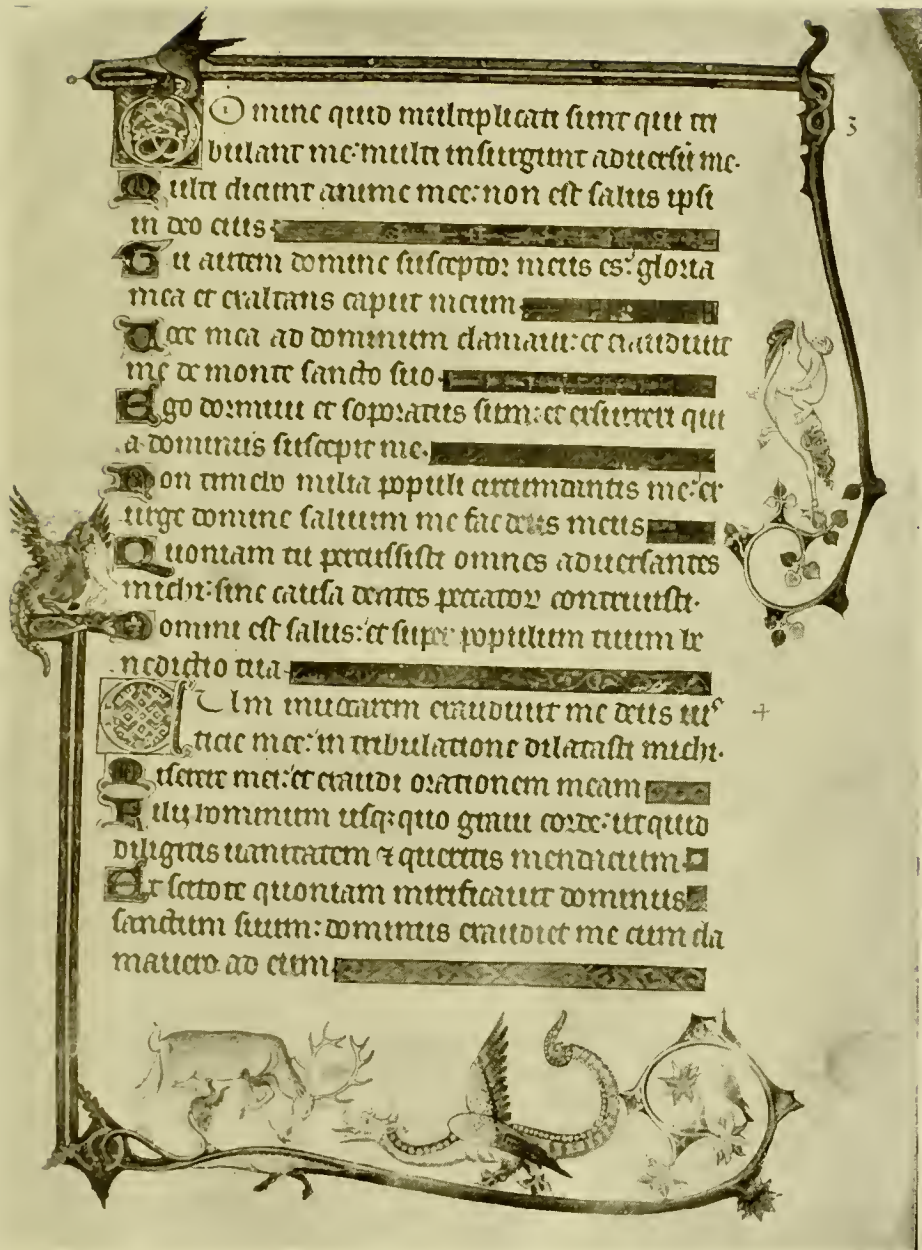 Domine quid multiplicati sunt qui tri 3
bulant me: multi insurgunt adversū me.
Multi dicunt anime mee: non est salus ipsi
in deo eius
Tu autem domine susceptor meus es: gloria
mea et exaltans caput meum
Voce mea ad dominum clamavi: et exaudivit
me de monte sancto suo.
Ego dormivi et soporatus sum: et exsurrexi qui
a dominus suscepit me.
Non timebo milia populi circumdantis me: ex
urge domine salvum me fac deus meus
Quoniam tu percussisti omnes adversantes
michi: sine causa dentes peccatoꝝ contrivisti.
Domini est salus: et super populum tuum be
nedictio tua.
Cum invocarem exaudivit me deus ius 4
ticie mee: in tribulatione dilatasti michi.
Miserere mei: et exaudi orationem meam
Filij hominum usq; quo gravi corde: ut quid
diligitis vanitatem ⁊ queritis mendacium
Et scitote quoniam mirificavit dominus
sanctum suum: dominus exaudiet me cum cla
mavero ad eum